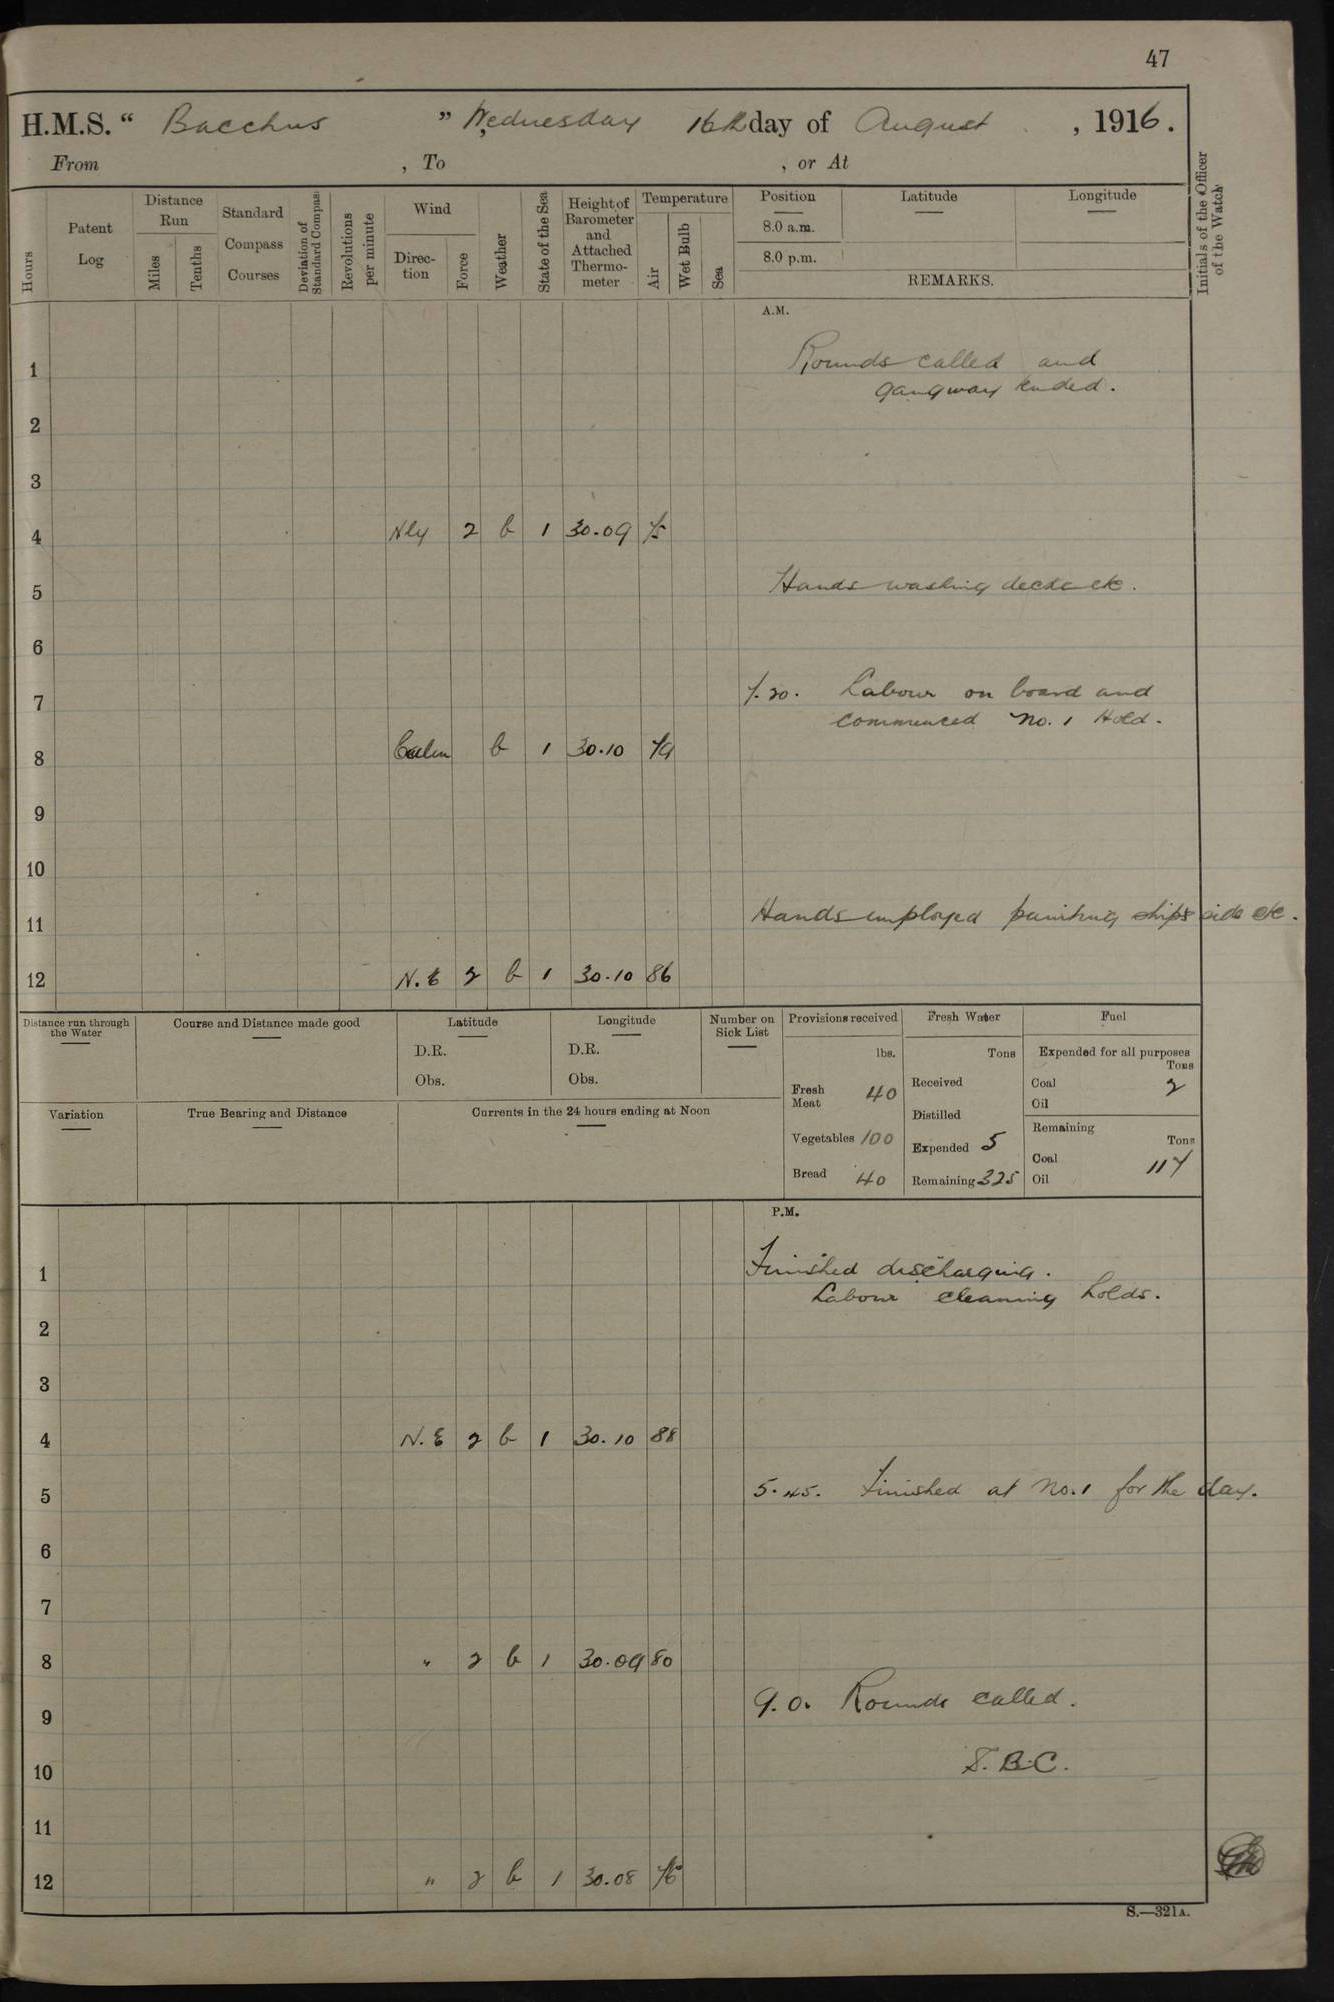 47
H.M.S. “ Bacchus ” Wednesday 16th day of August , 1916.
From , To , or At
Hours
Patent Log
Distance Run
Miles
Tenths
Standard Compass Courses
Deviation of Standard Compass
Revolutions per minute
Wind
Direc-tion
Force
Weather
State of the Sea
Height of Barometer and Attached Thermo-meter
Temperature
Air
Wet Bulb
Sea
Position
8.0 a.m.
8.0 p.m.
Latitude
Longitude
REMARKS.
Initials of the Officer of the Watch
A.M.
1 Rounds called and
gangway tended.
2
3
4 Nly 2 b 1 30.09 75
5 Hands washing decks etc.
6
7 7.20. Labour on board and
commenced No. 1 Hold.
8 Calm b 1 30.10 79
9
10
11 Hands employed painting ships side etc.
12 N.E 2 b 1 30.10 86
Distance run through the Water
Course and Distance made good
Latitude
D.R.
Obs.
Longitude
D.R.
Obs.
Number on Sick List
Provisions received
lbs.
Fresh Meat 40
Vegetables 100
Bread 40
Fresh Water
Tons
Received
Distilled
Expended 5
Remaining 325
Fuel
Expended for all purposes
Tons
Coal 2
Oil
Remaining
Tons
Coal 117
Oil
Variation
True Bearing and Distance
Currents in the 24 hours ending at Noon
P.M.
1 Finished discharging.
Labour cleaning holds.
2
3
4 N.E 2 b 1 30.10 88
5 5.45. Finished at No.1 for the day.
6
7
8 " 2 b 1 30.09 80
9 9.0. Rounds called.
10 S.B.C.
11
12 " 2 b 1 30.08 76
S.—321A.